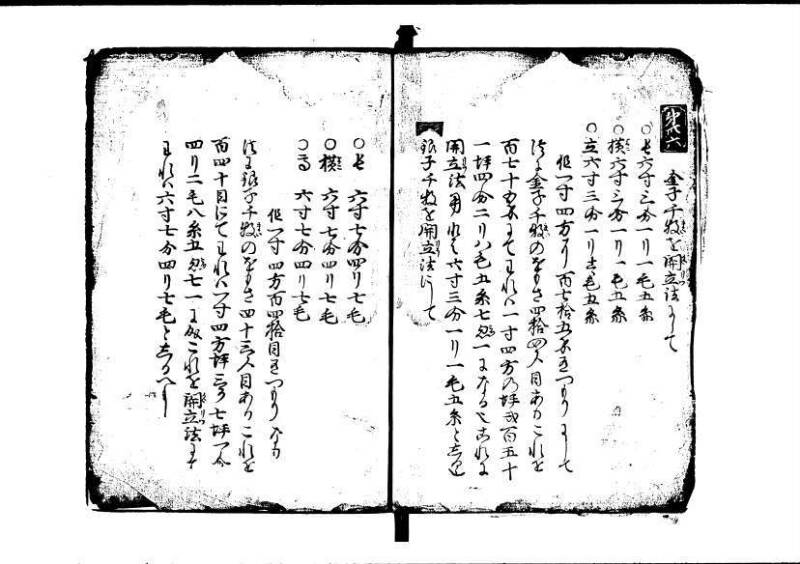 第六
金子千枚を開立法にして
○長六寸三分一リ一毛五糸
○横六寸三分一リ一毛五糸
○立六寸三分一リ一毛五糸
但一寸四方百七拾五匁をつもりにして
法に金子千枚のをもさ四拾四〆目ありこれを
百七十五匁にてわれハ一寸四方の坪弐百五十
一坪四分二リ八毛五糸七忽一になるこれを
開立法用れは六寸三分一リ一毛五糸と
銀子千枚を開立法にして
○長 六寸七分四リ七毛
○横 六寸七分四リ七毛
○高 六寸七分四リ七毛
但一寸四方百四拾目をつもりなり
法に銀子千枚のをもさ四十三〆目ありこれを
百四十目にてわれハ一寸四方坪三百七坪一分
四リ二毛八糸五忽七一になるこれを開立法にす
れハ六寸七分四リ七毛としるへし